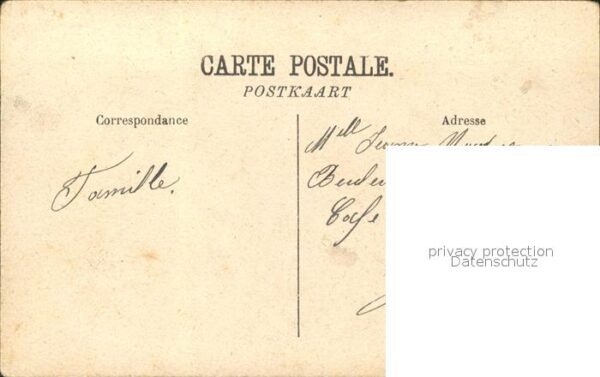 CARTE POSTALE.
POSTKAART
Correspondance
Adresse
Mlle
Famille.
Café
privacy protection
Datenschutz